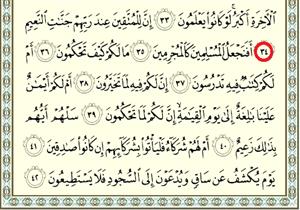 ٱلْأَخِرَةِ أَكْبَرُ لَوْ كَانُوا۟ يَعْلَمُونَ ٣٣ إِنَّ لِلْمُتَّقِينَ عِندَ رَبِّهِمْ جَنَّـٰتِ ٱلنَّعِيمِ
٣٤ أَفَنَجْعَلُ ٱلْمُسْلِمِينَ كَٱلْمُجْرِمِينَ ٣٥ مَا لَكُمْ كَيْفَ تَحْكُمُونَ ٣٦ أَمْ
لَكُمْ كِتَـٰبٌ فِيهِ تَدْرُسُونَ ٣٧ إِنَّ لَكُمْ فِيهِ لَمَا تَخَيَّرُونَ ٣٨ أَمْ لَكُمْ أَيْمَـٰنٌ
عَلَيْنَا بَـٰلِغَةٌ إِلَىٰ يَوْمِ ٱلْقِيَـٰمَةِ إِنَّ لَكُمْ لَمَا تَحْكُمُونَ ٣٩ سَلْهُمْ أَيُّهُم
بِذَٰلِكَ زَعِيمٌ ٤٠ أَمْ لَهُمْ شُرَكَآءُ فَلْيَأْتُوا۟ بِشُرَكَآئِهِمْ إِن كَانُوا۟ صَـٰدِقِينَ ٤١
يَوْمَ يُكْشَفُ عَن سَاقٍ وَيُدْعَوْنَ إِلَى ٱلسُّجُودِ فَلَا يَسْتَطِيعُونَ ٤٢